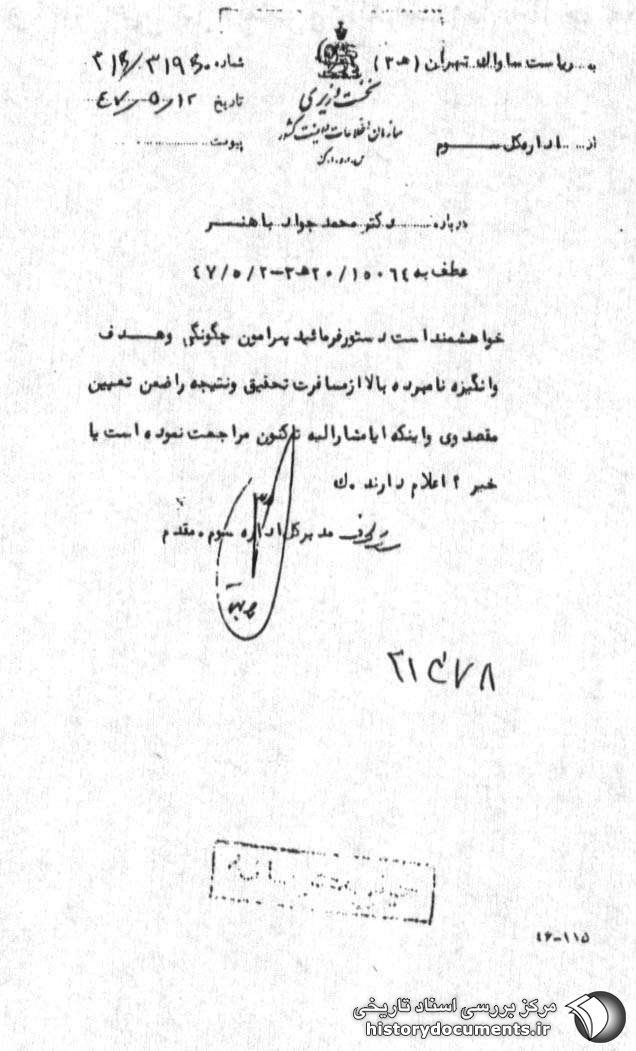 به ریاست ساواک تهران (ه‍ ۳)
شماره
نخست وزیری
تاریخ ۴۷/۵/۱۲
سازمان اطلاعات و امنیت کشور
از اداره کل سوم
پیوست
س.ا.و.ا.ک
درباره دکتر محمد جواد باهنر
عطف به ۱۵۰۶۴/۲۰ه‍ ۳-۴۷/۵/۲
خواهشمند است دستور فرمائید پیرامون چگونگی و هدف
و انگیزه نامبرده بالا از مسافرت تحقیق و نتیجه را ضمن تعیین
مقصد وی و اینکه ایا مشارالیه تاکنون مراجعت نموده است یا
خیر ؟ اعلام دارند . ک
مدیر کل اداره سوم . مقدم
۴۶-۱۱۵
مرکز بررسی اسناد تاریخی
historydocuments.ir